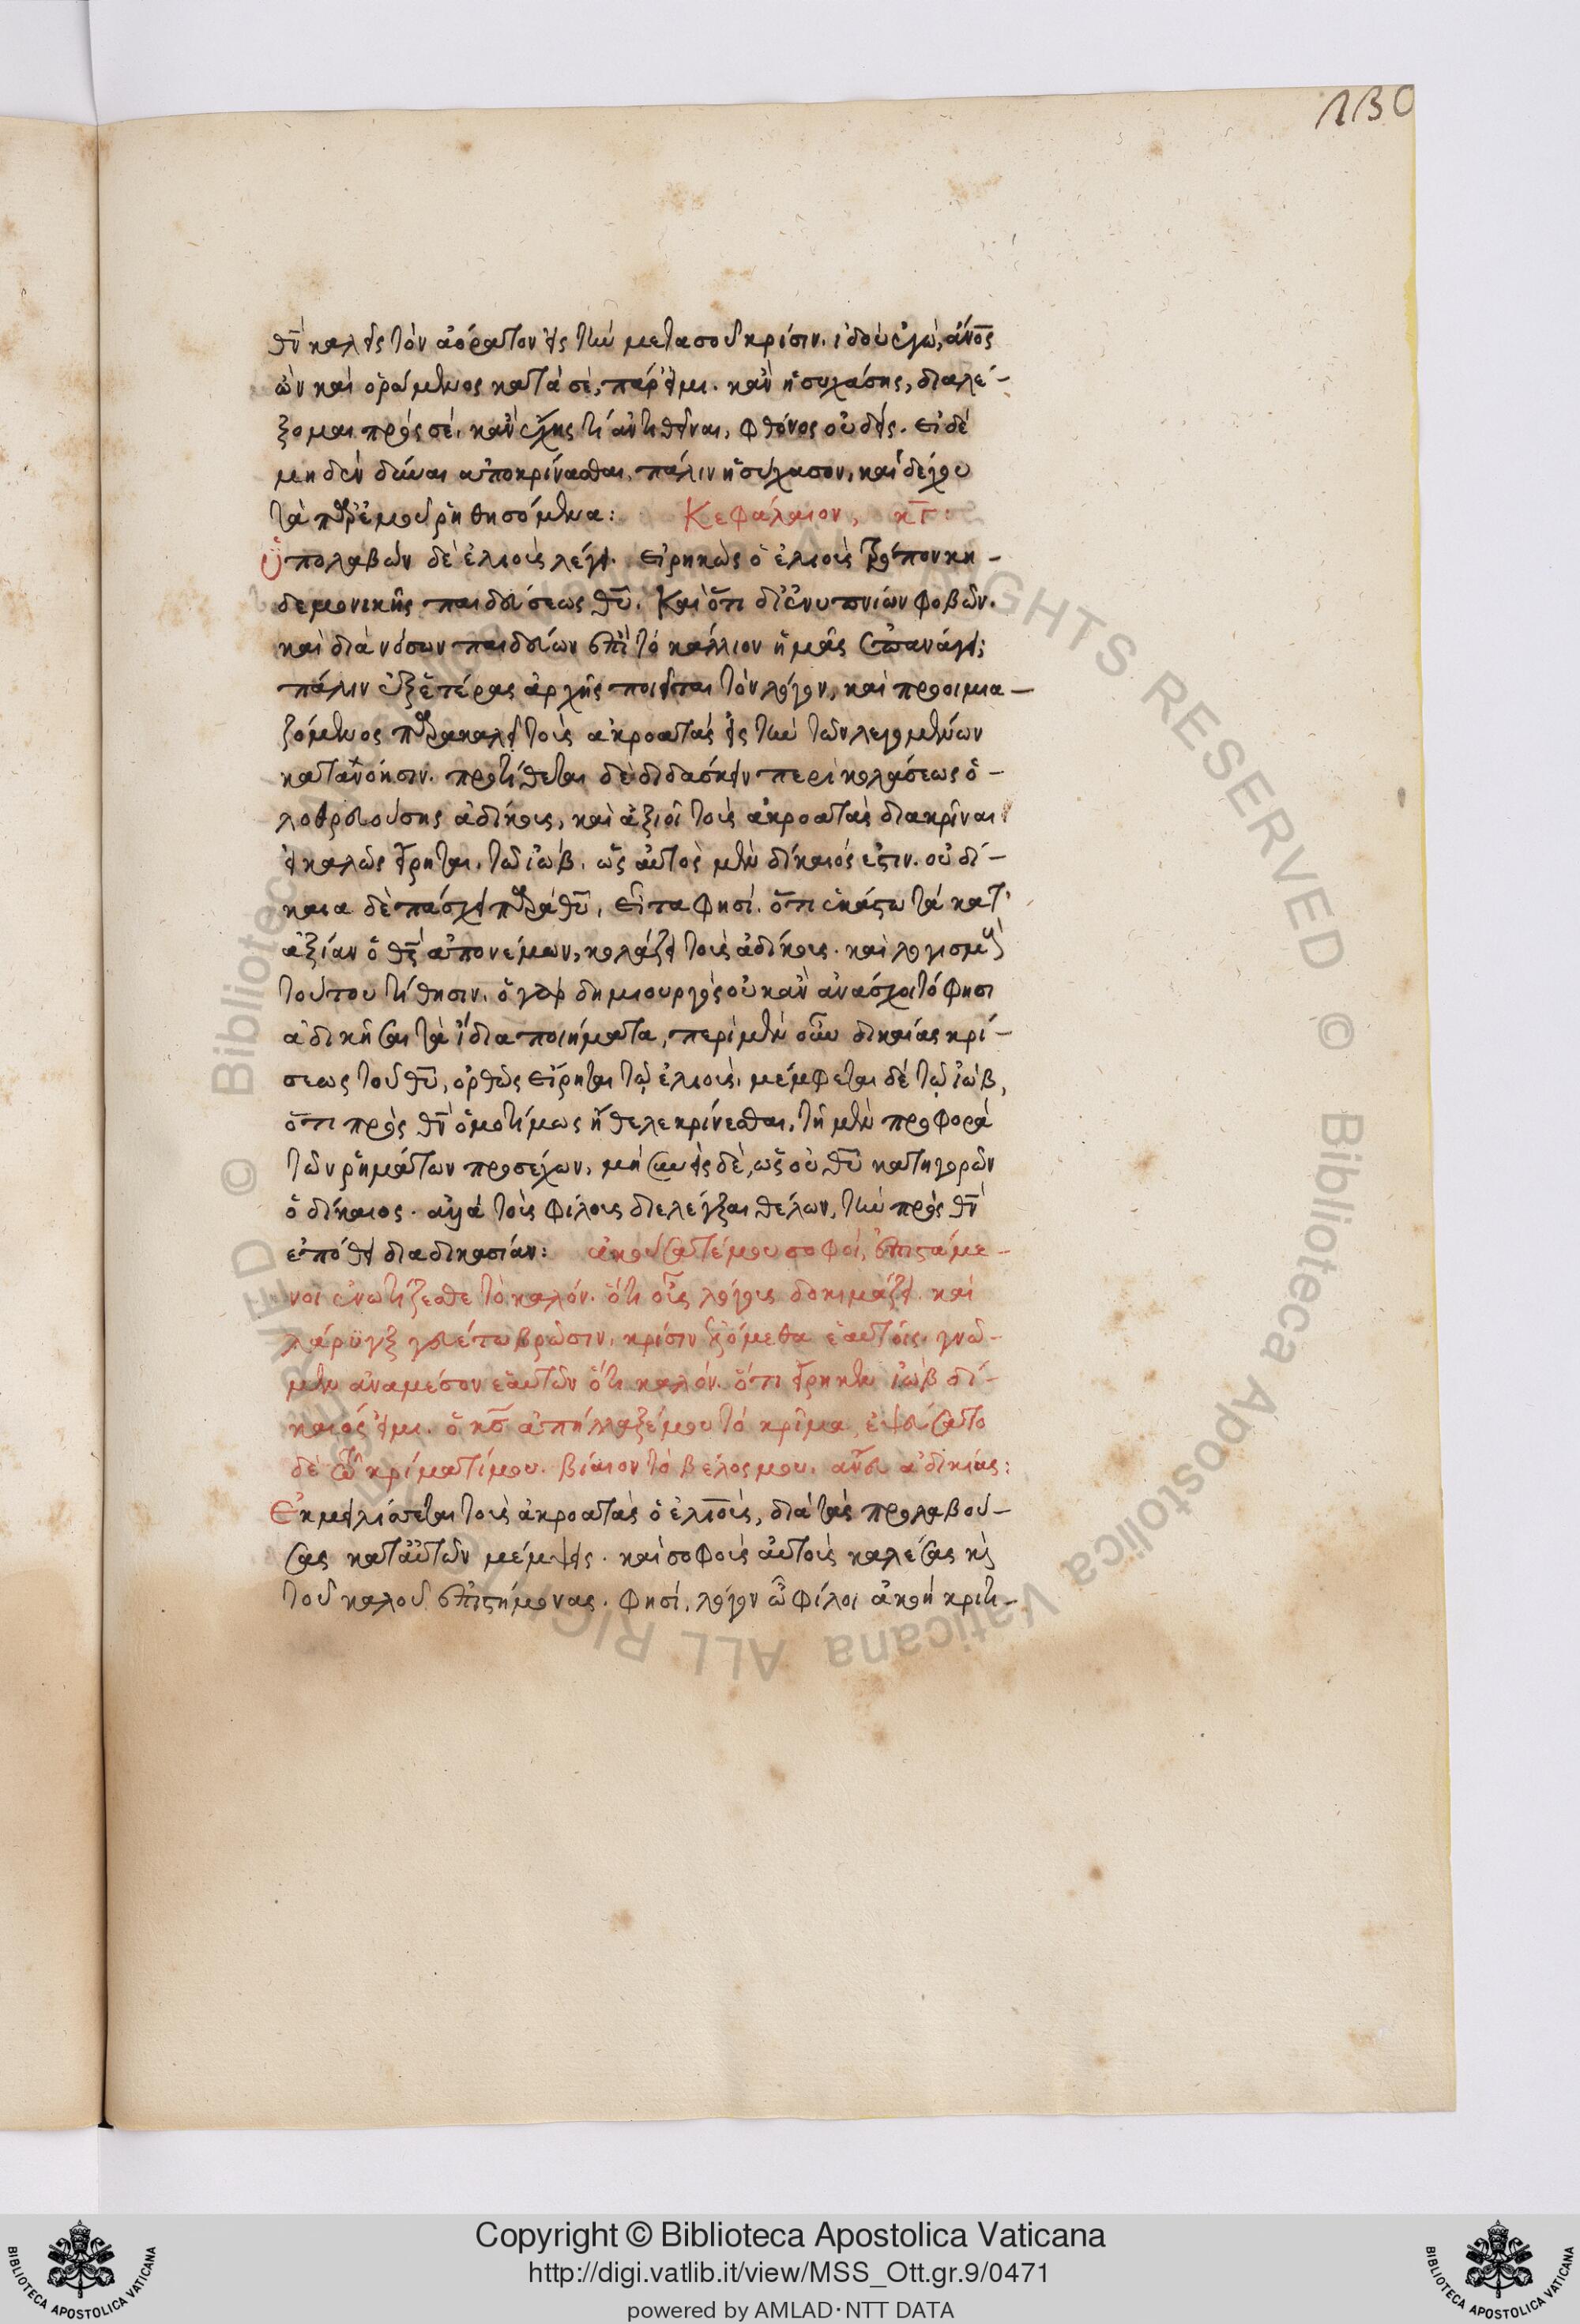 230
θν̄ καλεῖς τὸν ἀόρατον εἰς τὴν μετασοῦ κρίσιν. ἰδοὺ ἐγὼ, ἄνο̄ς
ὢν καὶ ὁρώμενος κατὰ σὲ, πάρειμι. κἂν ἡσυχάσης, διαλέ-
ξομαι πρὸς σέ. κἂν ἔχης τί ἀντιθεῖναι, φθόνος οὐδείς. εἰ δὲ
μηδὲν δύναι ἀποκρίνασθαι, πάλιν ἡσύχασον, καὶ δέχου
τὰ παρ' ἐμοῦ ῥηθησόμενα: Κεφάλαιον, κγ̄:
ὑπολαβὼν δὲ ἐλιοὺς λέγει. εἰρηκὼς ὁ ἐλιοὺς τρόπον κη-
δεμονικῆς παιδεύσεως θῡ. Καὶ ὅτι δι' ἐνυπνίων φοβῶν.
καὶ διὰ νόσων παιδεύων ἐπὶ τὸ κάλλιον ἡμᾶς ἐπανάγει;
πάλιν ἐξ ἑτέρας ἀρχῆς ποιεῖται τὸν λόγον, καὶ προοιμια-
ζόμενος παρακαλεῖ τοὺς ἀκροατὰς εἰς τὴν τῶν λεγομένων
κατανόησιν. προτίθεται δὲ διδάσκειν περὶ κολάσεως ὀ-
λοθρευούσης ἀδίκους, καὶ ἀξιοῖ τοὺς ἀκροατὰς διακρῖναι
εἰ καλῶς εἴρηται, τῶ ἰὼβ. ὡς αὐτὸς μὲν δίκαιός ἐστιν. οὐ δί-
καια δὲ πάσχει παρὰ θῡ, εἶτα φησί. ὅτι ἑκάστω τὰ κατ'
ἀξίαν ὁ θς̄ ἀπονέμων, κολάζει τοὺς ἀδίκους. καὶ λογισμὸν
τούτου τίθησιν. ὁ γὰρ δημιουργὸς οὐκ ἂν ἀνάσχοιτό φησι
ἀδικῆσαι τὰ ἴδια ποιήματα, περὶ μὲν οὖν δικαίας κρί-
σεως τοῦ θῡ, ὀρθῶς εἴρηται τῷ ἐλιοὺς, μέμφεται δὲ τῷ ἰὼβ,
ὅτι πρὸς θν̄ ὁμοτίμως ἤθελε κρίνεσθαι, τῆ μὲν προφορᾶ
τῶν ῥημάτων προσέχων, μὴ συνεὶς δὲ, ὡς οὐ θῡ κατηγορῶν
ὁ δίκαιος. ἀλλὰ τοὺς φίλους διελέγξαι θέλων, τὴν πρὸς θν̄
ἐπόθει διαδικασίαν: ἀκούσατέ μου σοφοί, ἐπιστάμε-
νοι ἐνωτίζεσθε τὸ καλόν. ὅτι οὖς λόγους δοκιμάζει. καὶ
λάρυγξ γεύεται βρῶσιν. κρίσιν ἑλόμεθα ἑαυτοῖς. γνῶ-
μεν ἀναμέσον ἑαυτῶν ὅτι καλόν. ὅτι εἴρηκεν ἰὼβ δί-
καιός εἰμι. ὁ κς̄ ἀπήλλαξέ μου τὸ κρίμα, ἐψεύσατο
δὲ τῶ κρίματί μου. βίαιον τὸ βέλος μου, ἄνευ ἀδικίας:
Ἐκμειλίσσεται τοὺς ἀκροατὰς ὁ ἐλιοὺς, διὰ τὰς προλαβού-
σας κατ' αὐτῶν μέμψεις. καὶ σοφοὺς αὐτοὺς καλέσας καὶ
τοῦ καλοῦ ἐπιστήμονας. φησί. λόγον ὦ φίλοι ἀκοὴ κριτι-
Copyright © Biblioteca Apostolica Vaticana
http://digi.vatlib.it/view/MSS_Ott.gr.9/0471
powered by AMLAD · NTT DATA